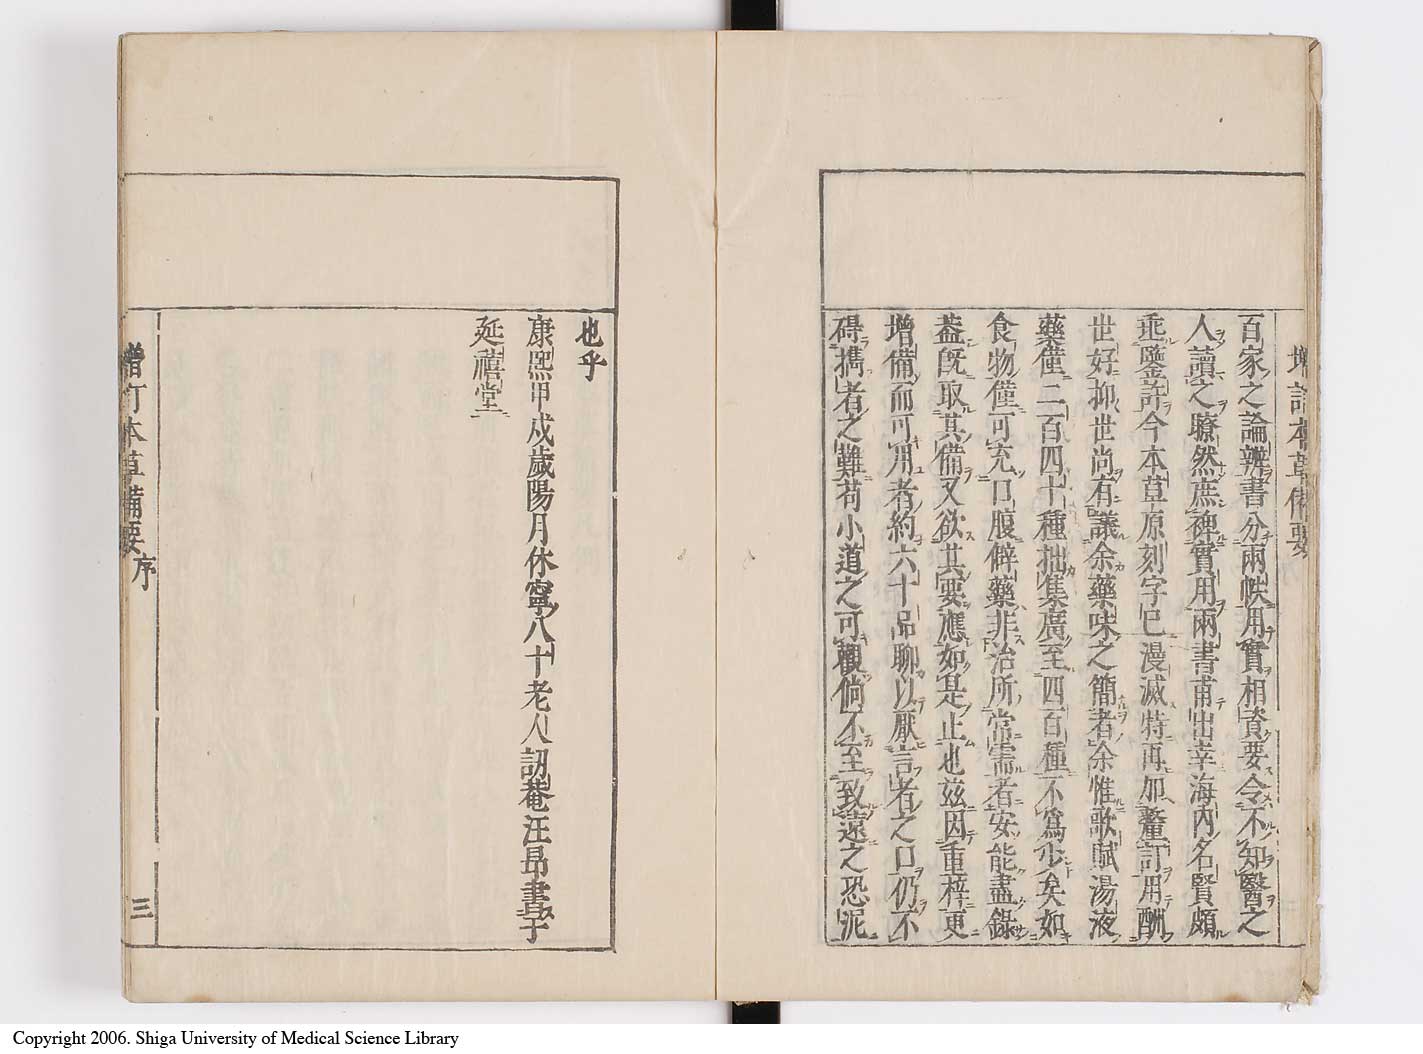 增訂本草備要
百家之論辨書分兩帙用實相資要令不知醫之
人讀之瞭然庶裨實用兩書甫出幸海內名賢頗
垂鑒許今本草原刻字已漫滅特再加釐訂用酬
世好抑世尚有議余藥味之簡者余惟歌賦湯液
藥僅二百四十種拙集廣至四百種不爲少矣如
食物僅可充口腹僻藥非治所常需者安能盡錄
葢旣取其備又欲其要應如是止也茲因重梓更
增備而可用者約六十品聊以厭言者之口仍不
碍擕者之難苟小道之可觀倘不至致遠之恐泥
也乎
康熙甲戌歲陽月休寧八十老人訒菴汪昻書于
延禧堂
增訂本草備要 序
三
Copyright 2006. Shiga University of Medical Science Library